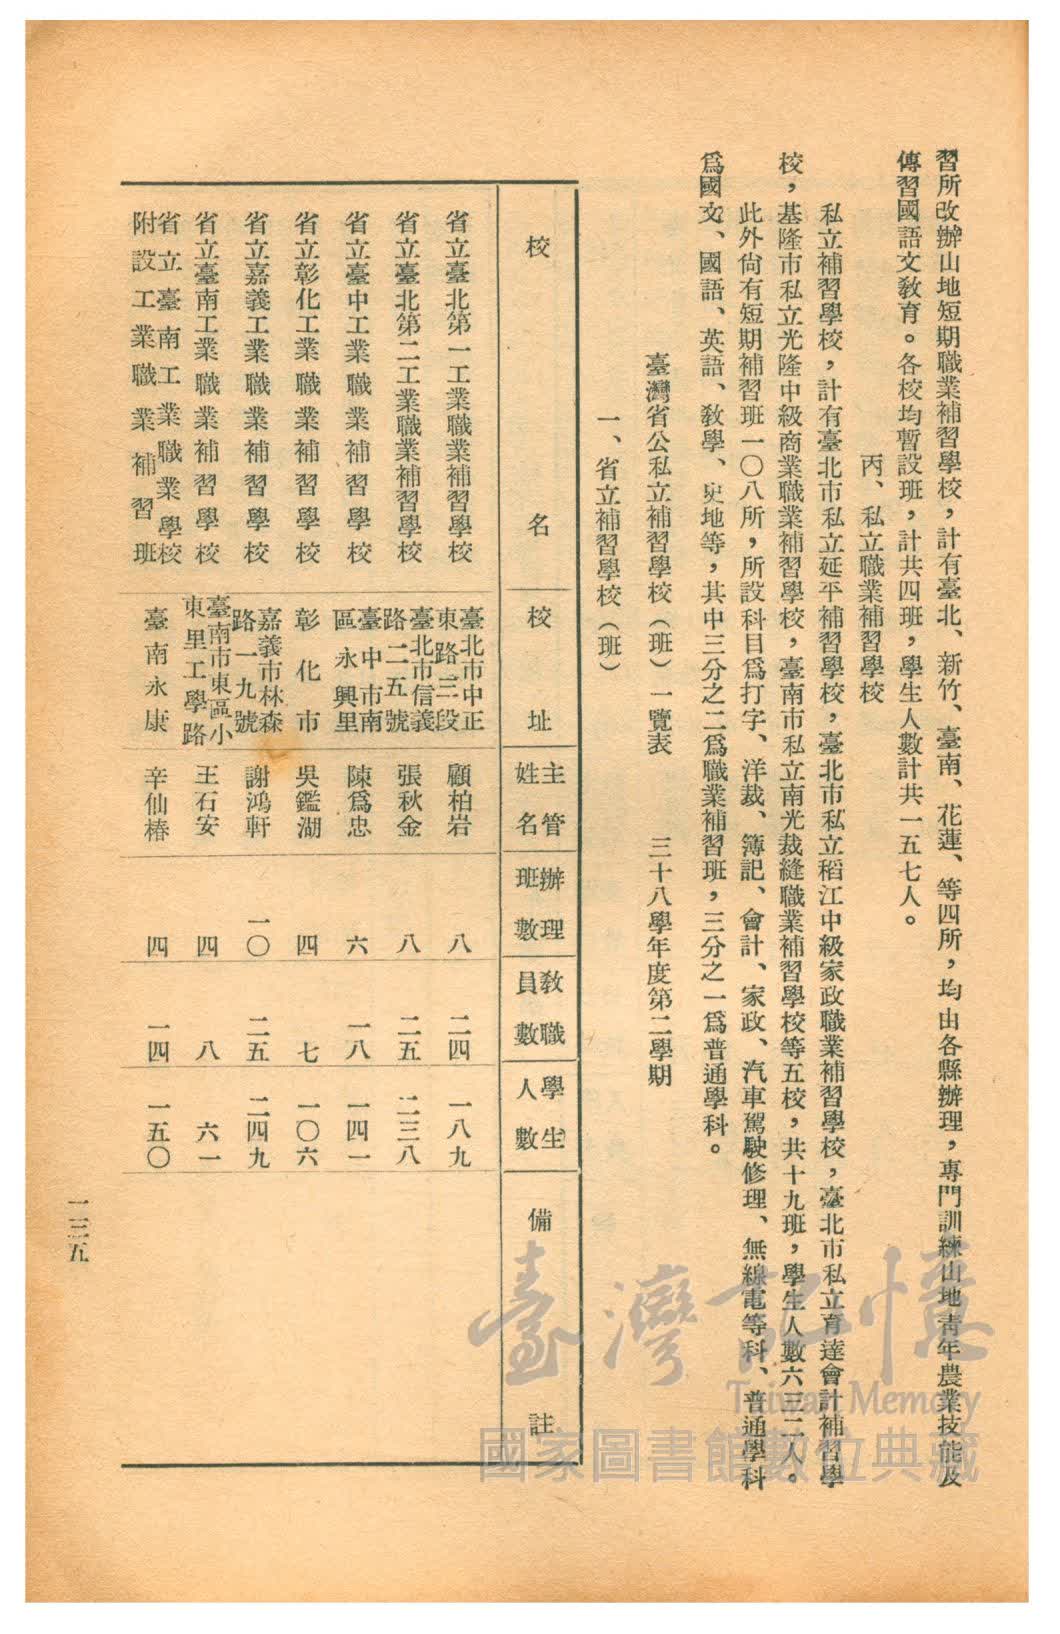 習所改辦山地短期職業補習學校，計有臺北、新竹、臺南、花蓮、等四所，均由各縣辦理，專門訓練山地青年農業技能及
傳習國語文教育。各校均暫設班，計共四班，學生人數計共一五七人。
丙、私立職業補習學校
私立補習學校，計有臺北市私立延平補習學校，臺北市私立稻江中級家政職業補習學校，臺北市私立育達會計補習學
校，基隆市私立光隆中級商業職業補習學校，臺南市私立南光裁縫職業補習學校等五校，共十九班，學生人數六三二人。
此外尙有短期補習班一〇八所，所設科目爲打字、洋裁、簿記、會計、家政、汽車駕駛修理、無線電等科、普通學科
爲國文、國語、英語、敎學、史地等，其中三分之二爲職業補習班，三分之一爲普通學科。
臺灣省公私立補習學校（班）一覽表 三十八學年度第二學期
一、省立補習學校（班）
校名 校址 主管姓名 辦理班數 敎職員數 學生人數 備註
省立臺北第一工業職業補習學校 臺北市中正東路三段 顧柏岩 八 二四 一八九
省立臺北第二工業職業補習學校 臺北市信義路二五號 張秋金 八 二五 二三八
省立臺中工業職業補習學校 臺中市南區永興里 陳爲忠 六 一八 一四一
省立彰化工業職業補習學校 彰化市 吳鑑湖 四 七 一〇六
省立嘉義工業職業補習學校 嘉義市林森路一九號 謝鴻軒 一〇 二五 二四九
省立臺南工業職業補習學校 臺南市東區小東里工學路 王石安 四 八 六一
省立臺南工業職業學校附設工業職業補習班 臺南永康 辛仙椿 四 一四 一五〇
一三五
臺灣記憶
Taiwan Memory
國家圖書館數位典藏